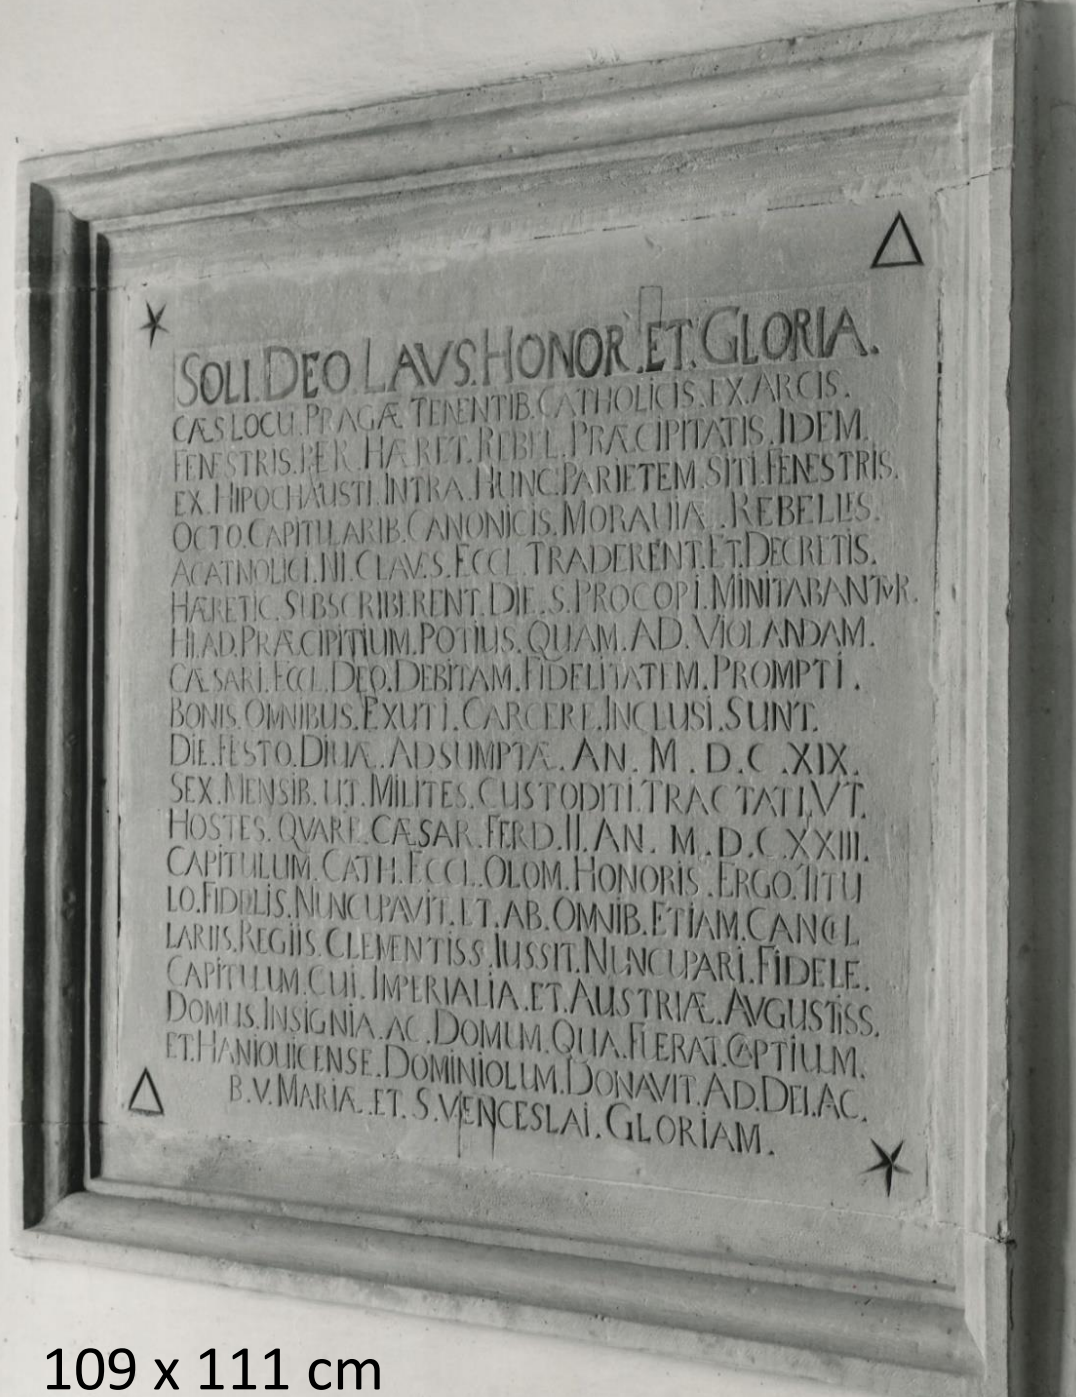 SOLI.DEO LAVS.HONOR.ET.GLORIA.
CÆS LOCU.PRAGÆ TENENTIB.CATHOLICIS.EX.ARCIS.
FENESTRIS.PER.HÆRET.REBEL.PRÆCIPITATIS.IDEM.
EX.HIPOCHAUSTI.INTRA.HUNC.PARIETEM.SITI.FENESTRIS.
OCTO.CAPITULARIB.CANONICIS.MORAUIÆ.REBELLES.
ACATHOLICI.NI.CLAVS.ECCL.TRADERENT.ET.DECRETIS.
HÆRETIC.SUBSCRIBERENT.DIE.S.PROCOPI.MINITABANTVR.
HI.AD.PRÆCIPITIUM.POTIUS.QUAM.AD.VIOLANDAM.
CÆSARI.ECCL.DEO.DEBITAM.FIDELITATEM.PROMPTI.
BONIS.OMNIBUS.EXUTI.CARCERE.INCLUSI.SUNT.
DIE.FESTO.DIUÆ.ADSUMPTÆ.AN.M.D.C.XIX.
SEX.MENSIB.UT.MILITES.CUSTODITI.TRACTATI,VT.
HOSTES.QVARE.CÆSAR.FERD.II.AN.M.D.C.XXIII.
CAPITULUM.CATH.ECCL.OLOM.HONORIS.ERGO.TITU
LO.FIDELIS.NUNCUPAVIT.ET.AB.OMNIB.ETIAM.CANCEL
LARIIS.REGIIS.CLEMENTISS.IUSSIT.NUNCUPARI.FIDELE.
CAPITULUM.CUI.IMPERIALIA.ET.AUSTRIÆ.AVGUSTISS.
DOMUS.INSIGNIA.AC.DOMUM.QUA.FUERAT.CAPTIUUM.
ET.HANIOUICENSE.DOMINIOLUM.DONAVIT.AD.DEI.AC.
B.V.MARIÆ.ET.S.VENCESLAI.GLORIAM.
109 x 111 cm